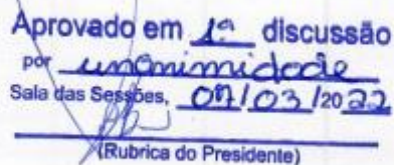 Aprovado em 1ª discussão
por unanimidade
Sala das Sessões, 07/03/2022
(Rubrica do Presidente)